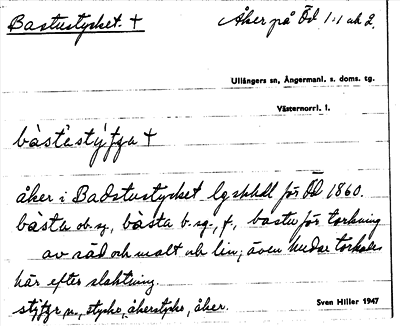 Bastustycket. +
Åker på Öd 1:1 och 2.
Ullångers sn, Ångermanl. s. doms. tg.
Västernorrl. l.
åker i Badstustycket lgskhdl för Öd 1860.
bàsta ob. sg., bàsta b. sg., f., bastu för torkning
av säd och malt och lin, även hudar torkades
här efter slaktning.
n., stycke, åkerstycke, åker.
Sven Hiller 1947